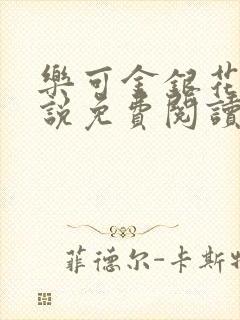 樂可金銀花
說免費閱讀
菲德尔-卡斯特